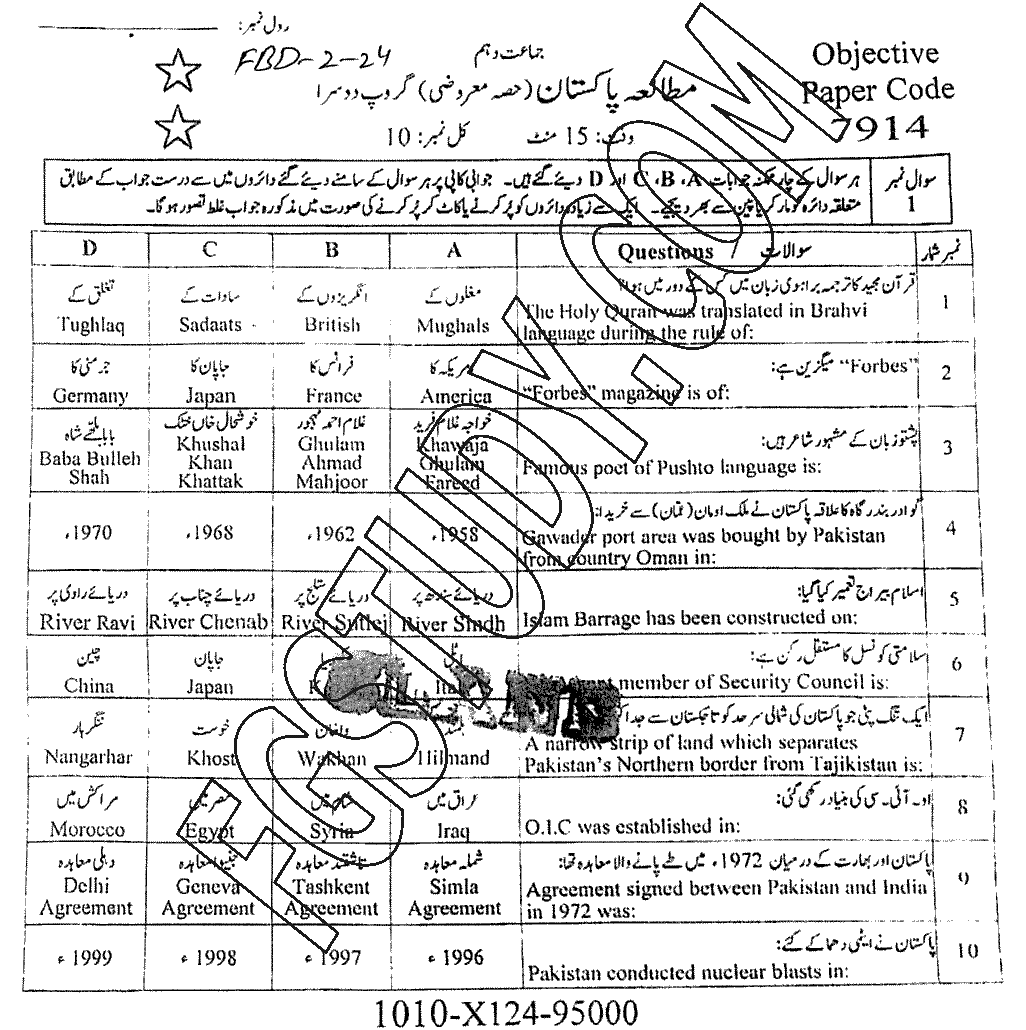 رول نمبر:
FBD-2-24
جماعت دہم
Objective
Paper Code
7914
مطالعہ پاکستان (حصہ معروضی) گروپ دوسرا
وقت: 15 منٹ کل نمبر: 10
سوال نمبر 1
ہر سوال کے چار ممکنہ جوابات A، B، C اور D دیئے گئے ہیں۔ جوابی کاپی پر ہر سوال کے سامنے دیئے گئے دائروں میں سے درست جواب کے مطابق
متعلقہ دائرہ کو مارکر یا پین سے بھر دیجیے۔ ایک سے زیادہ دائروں کو پُر کرنے یا کاٹ کر پُر کرنے کی صورت میں مذکورہ جواب غلط تصور ہوگا۔
D C B A Questions / سوالات نمبر شمار
1
قرآن مجید کا ترجمہ براہوی زبان میں کس کے دور میں ہوا:
The Holy Quran was translated in Brahvi
language during the rule of:
مغلوں کے
Mughals
انگریزوں کے
British
سادات کے
Sadaats
تغلق کے
Tughlaq
2
"Forbes" میگزین ہے:
"Forbes" magazine is of:
امریکہ کا
America
فرانس کا
France
جاپان کا
Japan
جرمنی کا
Germany
3
پشتو زبان کے مشہور شاعر ہیں:
Famous poet of Pushto language is:
خواجہ غلام فرید
Khawaja
Ghulam
Fareed
غلام احمد مہجور
Ghulam
Ahmad
Mahjoor
خوشحال خاں خٹک
Khushal
Khan
Khattak
بابا بلھے شاہ
Baba Bulleh
Shah
4
گوادر بندرگاہ کا علاقہ پاکستان نے ملک اومان (عمان) سے خریدا:
Gawader port area was bought by Pakistan
from country Oman in:
1958ء
1962ء
1968ء
1970ء
5
اسلام بیراج تعمیر کیا گیا:
Islam Barrage has been constructed on:
دریائے سندھ پر
River Sindh
دریائے ستلج پر
River Sutlej
دریائے چناب پر
River Chenab
دریائے راوی پر
River Ravi
6
سلامتی کونسل کا مستقل رکن ہے:
member of Security Council is:
اٹلی
جاپان
Japan
چین
China
7
ایک تنگ پٹی جو پاکستان کی شمالی سرحد کو تاجکستان سے جدا
A narrow strip of land which separates
Pakistan's Northern border from Tajikistan is:
ہلمند
Hilmand
واخان
Wakhan
خوست
Khost
ننگرہار
Nangarhar
8
او۔ آئی۔ سی کی بنیاد رکھی گئی:
O.I.C was established in:
عراق میں
Iraq
شام میں
Syria
مصر میں
Egypt
مراکش میں
Morocco
9
پاکستان اور بھارت کے درمیان 1972ء میں طے پانے والا معاہدہ تھا:
Agreement signed between Pakistan and India
in 1972 was:
شملہ معاہدہ
Simla
Agreement
تاشقند معاہدہ
Tashkent
Agreement
جنیوا معاہدہ
Geneva
Agreement
دہلی معاہدہ
Delhi
Agreement
10
پاکستان نے ایٹمی دھماکے کئے:
Pakistan conducted nuclear blasts in:
1996 ء
1997 ء
1998 ء
1999 ء
1010-X124-95000
FGSTUDY.COM